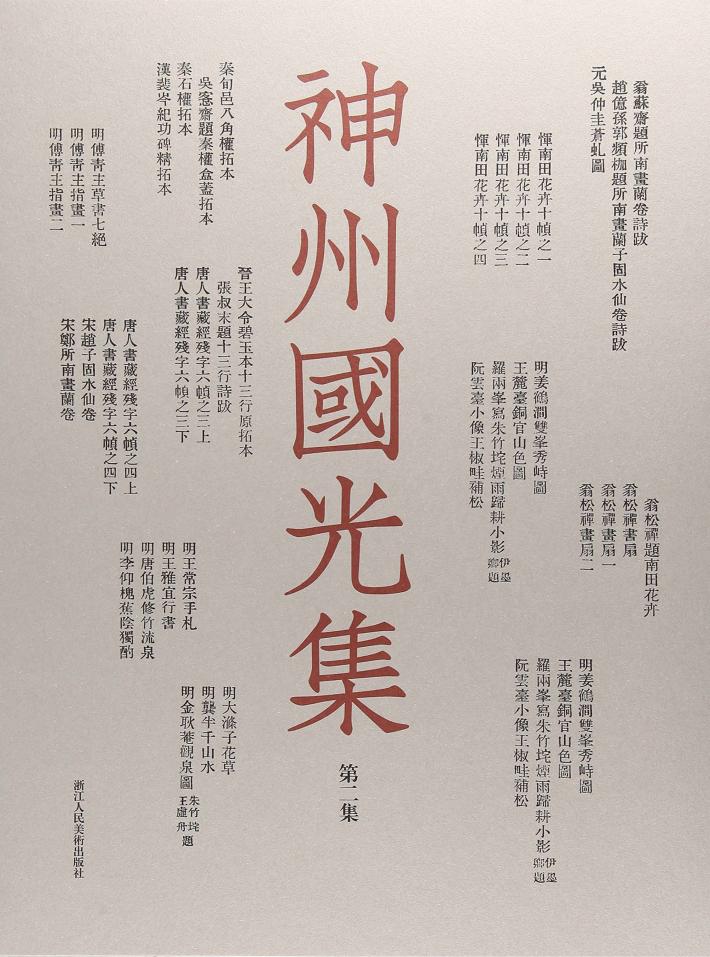 翁蘇齋題所南畫蘭卷詩跋
趙億孫郭頻枷題所南畫蘭子固水仙卷詩跋
元吳仲圭蒼虬圖
惲南田花卉十幀之一
惲南田花卉十幀之二
惲南田花卉十幀之三
惲南田花卉十幀之四
明姜鶴澗雙峯秀峙圖
王麓臺銅官山色圖
羅兩峯寫朱竹垞煙雨歸耕小影 伊墨卿題
阮雲臺小像王椒畦補松
翁松禪題南田花卉
翁松禪書扇
翁松禪畫扇一
翁松禪畫扇二
明姜鶴澗雙峯秀峙圖
王麓臺銅官山色圖
羅兩峯寫朱竹垞煙雨歸耕小影 伊墨卿題
阮雲臺小像王椒畦補松
神州國光集
第二集
秦旬邑八角權拓本
吳愙齋題秦權盒蓋拓本
秦石權拓本
漢裴岑紀功碑精拓本
明傅青主草書七絕
明傅青主指畫一
明傅青主指畫二
晉王大令碧玉本十三行原拓本
張叔未題十三行詩跋
唐人書藏經殘字六幀之三上
唐人書藏經殘字六幀之三下
唐人書藏經殘字六幀之四上
唐人書藏經殘字六幀之四下
宋趙子固水仙卷
宋鄭所南畫蘭卷
明王常宗手札
明王雅宜行書
明唐伯虎修竹流泉
明李仰槐蕉陰獨酌
明大滌子花草
明龔半千山水
明金耿菴觀泉圖 朱竹垞王虛舟題
浙江人民美術出版社